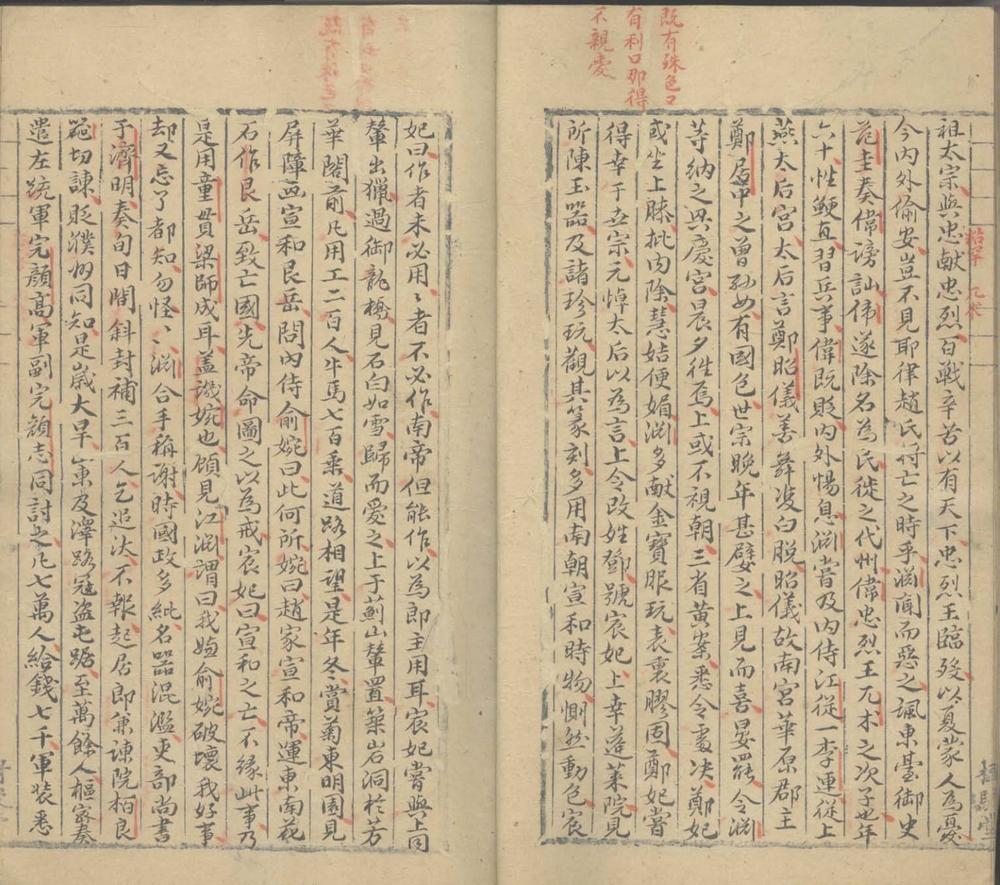 既有殊色又
有利口那得
不親愛
祖太宗與忠献忠烈百戰辛苦以有天下忠烈王臨殁以夏蒙人為憂
今内外偷安豈不見耶律趙氏将亡之時乎渊闻而惡之諷東臺御史
范圭奏偉謗訕偉遂除名為民徙之代州偉忠烈王兀术之次子也年
六十性鲠直習兵事偉既貶内外惕息渊嘗及内侍江從一李連從上
燕太后宫太后言鄭昭儀善舞凌白脱昭儀故南宫華原郡王
鄭居中之曾孙女有國色世宗晚年甚嬖之上見而喜晏罷令渊
等納之興慶宫晨夕徃焉上或不視朝三省黄案悉令處决鄭妃
或坐上膝批内除慧姑便媚渊多献金寶服玩表裏膠固鄭妃嘗
得幸于世宗元悼太后以為言上令改姓鄧號宸妃上幸蓬莱院見
所陳玉器及諸珍玩觀其篆刻多用南朝宣和時物惻然動色宸
妃曰作者未必用〻者不必作南帝但能作以為郎主用耳宸妃嘗與上同
輦出獵過御龍橋見石白如雪歸而愛之上于薊山輦置築岩洞於芳
華閣前凡用工二百人牛馬七百乘道路相望是年冬賞菊東明園見
屏障画宣和艮岳問内侍俞婉曰此何所婉曰趙家宣和帝運東南花
石作艮岳致亡國先帝命圖之以為戒宸妃曰宣和之亡不緣此事乃
是用童貫梁師成耳盖譏婉也顧見江渊謂曰我為俞婉破壞我好事
却又忘了都知勿怪〻渊合手稱謝時國政多紕名器混濫吏部尚書
于濟明奏旬日間斜封補三百人乞追汰不報起居郎兼諫院柏良
范切諫貶濮州同知是歲大旱山東及澤路冦盗屯踞至萬餘人樞密奏
遣左統軍完顔高軍副完顔志同討之凡七萬人給錢七千軍装悉